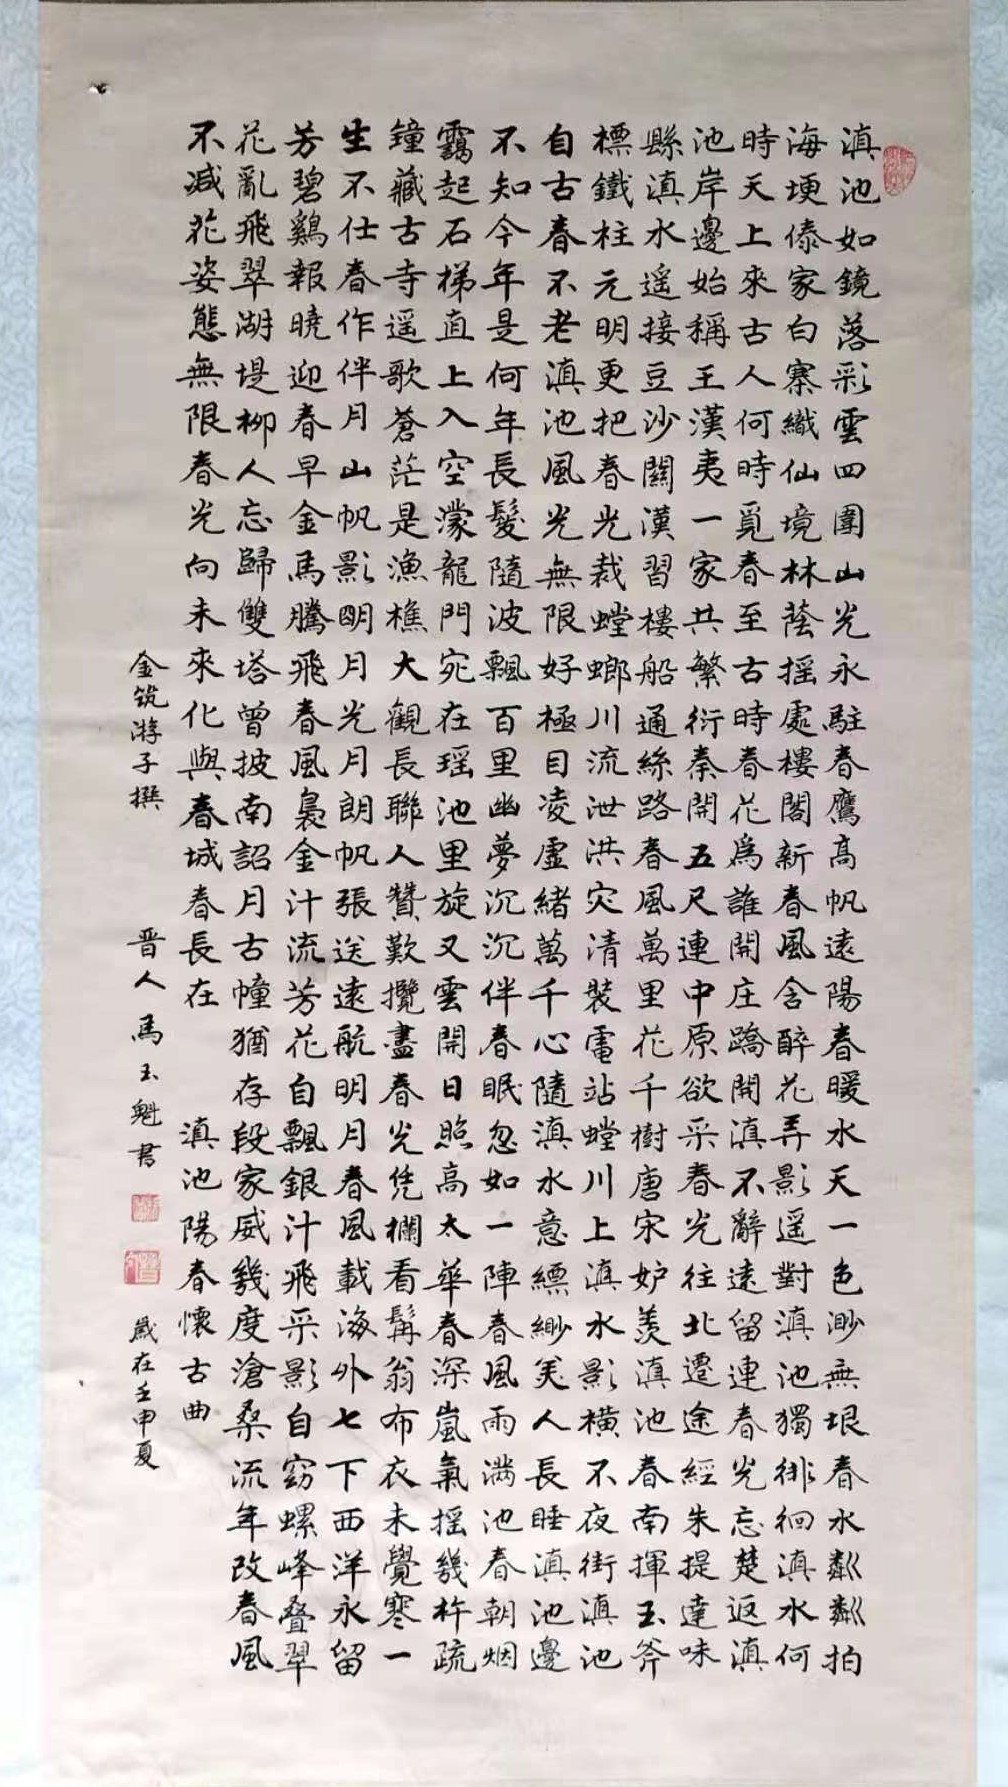 滇池如鏡落彩雲四圍山光永駐春鷹高帆遠陽春暖水天一色渺無垠春水粼粼拍
海埂傣家白寨織仙境林蔭摇處樓閣新春風含醉花弄影遥對滇池獨徘徊滇水何
時天上來古人何時覓春至古時春花爲誰開庄蹻開滇不辭遠留連春光忘楚返滇
池岸邊始稱王漢夷一家共繁衍秦開五尺連中原欲采春光往北遷途經朱提達味
縣滇水遥接豆沙關漢習樓船通絲路春風萬里花千樹唐宋妒羡滇池春南揮玉斧
標鐵柱元明更把春光裁螳螂川流泄洪灾清裝電站螳川上滇水影横不夜街滇池
自古春不老滇池風光無限好極目凌虚緒萬千心隨滇水意縹緲美人長睡滇池邊
不知今年是何年長髮隨波飄百里幽夢沉沉伴春眠忽如一陣春風雨满池春朝烟
靄起石梯直上入空濛龍門宛在瑶池里旋又雲開日照高太華春深嵐氣摇幾杵疏
鐘藏古寺遥歌蒼茫是漁樵大觀長聯人贊歎攬盡春光凭欄看髯翁布衣未覺寒一
生不仕春作伴月山帆影明月光月朗帆張送遠航明月春風載海外七下西洋永留
芳碧鷄報曉迎春早金馬騰飛春風裊金汁流芳花自飄銀汁飛采影自窈螺峰叠翠
花亂飛翠湖堤柳人忘歸雙塔曾披南詔月古幢猶存段家威幾度滄桑流年改春風
不减花姿態無限春光向未來化與春城春長在 滇池陽春懷古曲
金筑游子撰 晋人馬玉魁書 歲在壬申夏